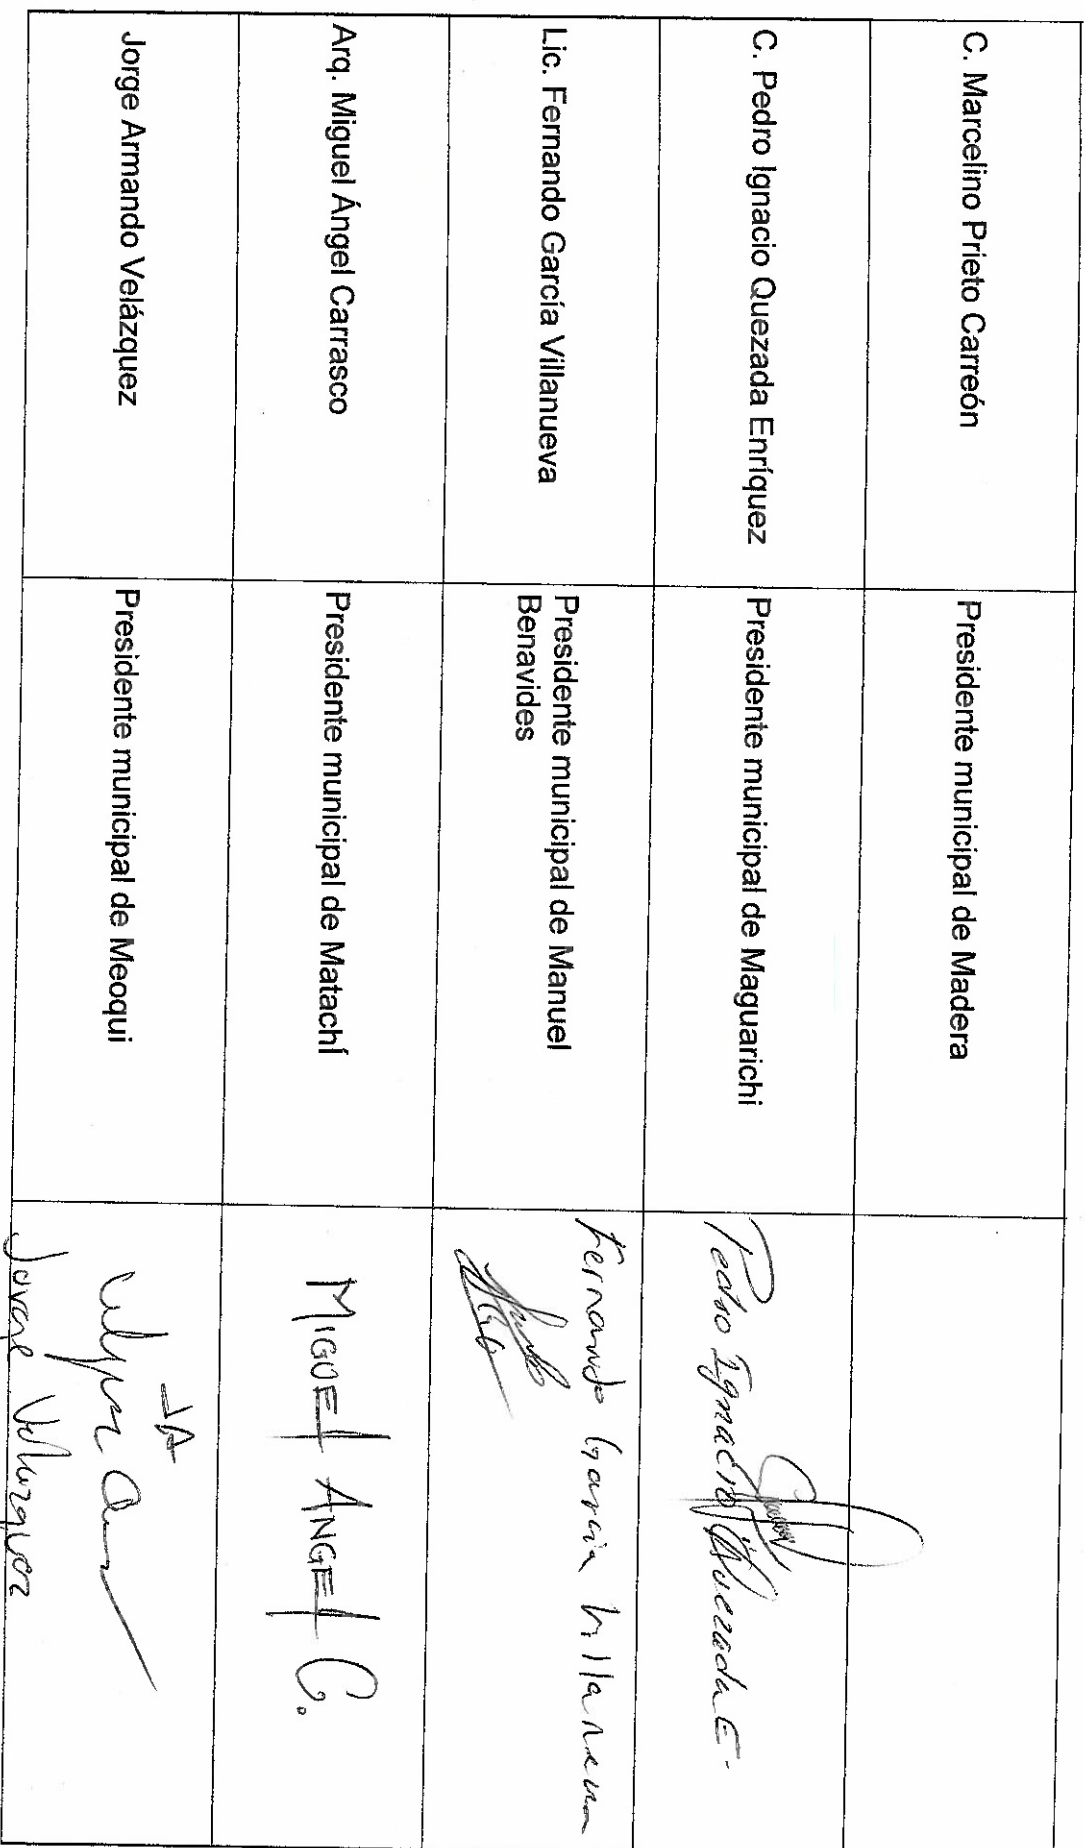 C. Marcelino Prieto Carreón
Presidente municipal de Madera
C. Pedro Ignacio Quezada Enríquez
Presidente municipal de Maguarichi
Pedro Ignacio Quezada E.
Lic. Fernando García Villanueva
Presidente municipal de Manuel
Benavides
Fernando García Villanueva
Arq. Miguel Ángel Carrasco
Presidente municipal de Matachí
MIGUEL ANGEL C.
Jorge Armando Velázquez
Presidente municipal de Meoqui
JA
Jorge Velazquez